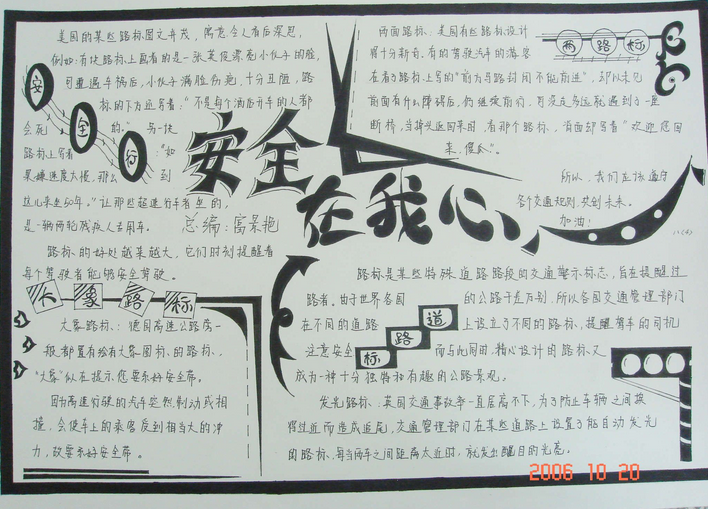 美国的某些路标图文并茂，寓意令人看后深思，
例如：有块路标上画着的是一张英俊漂亮小伙子的脸，
可遭遇车祸后，小伙子满脸伤疤，十分丑陋，路
标的下方还写着：“不是每个酒后开车的人都
会死的。”另一块
路标上写着：“如
果嫌速度太慢，那么到
这儿来走50年。”让那些超速行车者坐的，
是一辆两轮残疾人专用车。
路标的好处越来越大，它们时刻提醒着
每个驾驶者能够安全驾驶。
安全行
安全
在我心
总编：富景艳
两路标
两面路标：美国有些路标设计
得十分新奇，有的驾驶汽车的游客
在看了路标上写的“前方马路封闭不能前进”，却以未见
前面有什么障碍后，仍继续前行，可没走多远就遇到了一座
断桥，当掉头返回来时，看那个路标，背面却写着“欢迎您回
来，傻瓜”。
所以，我们应该遵守
各个交通规则，共创未来。
加油！
大象路标
大象路标：德国高速公路旁一
般都置有绘有大象图标的路标，
“大象”似在提示您要系好安全带。
因为高速行驶的汽车若然制动或相
撞，会使车上的乘客受到相当大的冲
力，故要系好安全带。
道路标
路标是某些特殊道路路段的交通警示标志，旨在提醒过
路者。由于世界各国的公路千差万别，所以各国交通管理部门
在不同的道路上设立了不同的路标，提醒驾车的司机
注意安全，而与此同时，精心设计的路标又
成为一种十分独特和有趣的公路景观。
发光路标：英国交通事故率一直居高不下，为了防止车辆之间挨
得过近而造成追尾，交通管理部门在某些道路上设置了能自动发光
的路标，每当两车之间距离太近时，就发出醒目的光亮。
2006 10 20